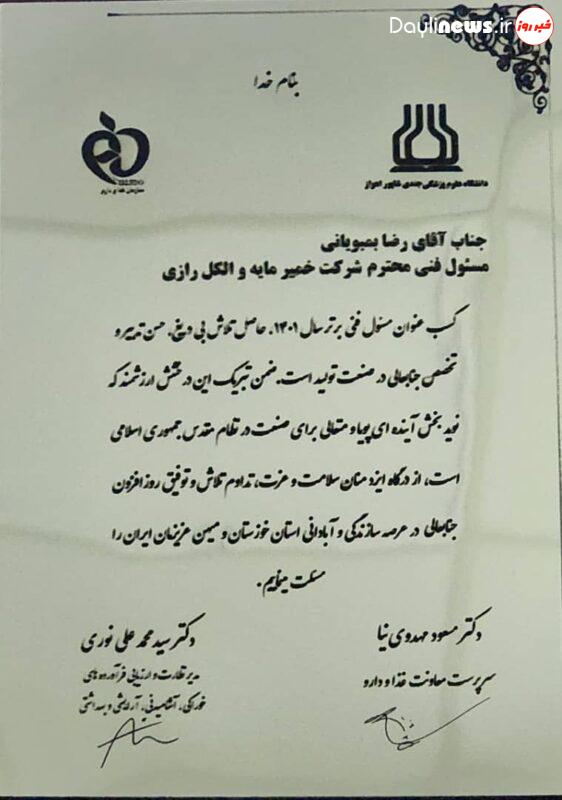 Daylinews.ir خبر روز
بنام خدا
دانشگاه علوم پزشکی جندی شاپور اهواز
سازمان غذا و دارو
جناب آقای رضا بمبویانی
مسئول فنی محترم شرکت خمیر مایه و الکل رازی
کسب عنوان مسئول فنی برتر سال ۱۴۰۱، حاصل تلاش بی دریغ، حسن تدبیر و
تخصص جنابعالی در صنعت تولید است. ضمن تبریک این درخشش ارزشمند که
نوید بخش آینده ای پویا و متعالی برای صنعت در نظام مقدس جمهوری اسلامی
است، از درگاه ایزد منان سلامت و عزت، تداوم تلاش و توفیق روز افزون
جنابعالی در عرصه سازندگی و آبادانی استان خوزستان و میهن عزیزمان ایران را
مسئلت مینمایم.
دکتر مسعود مهدوی نیا
سرپرست معاونت غذا و دارو
دکتر سید محمد علی نوری
مدیر نظارت و ارزیابی فرآورده های
خوراکی، آشامیدنی، آرایشی و بهداشتی